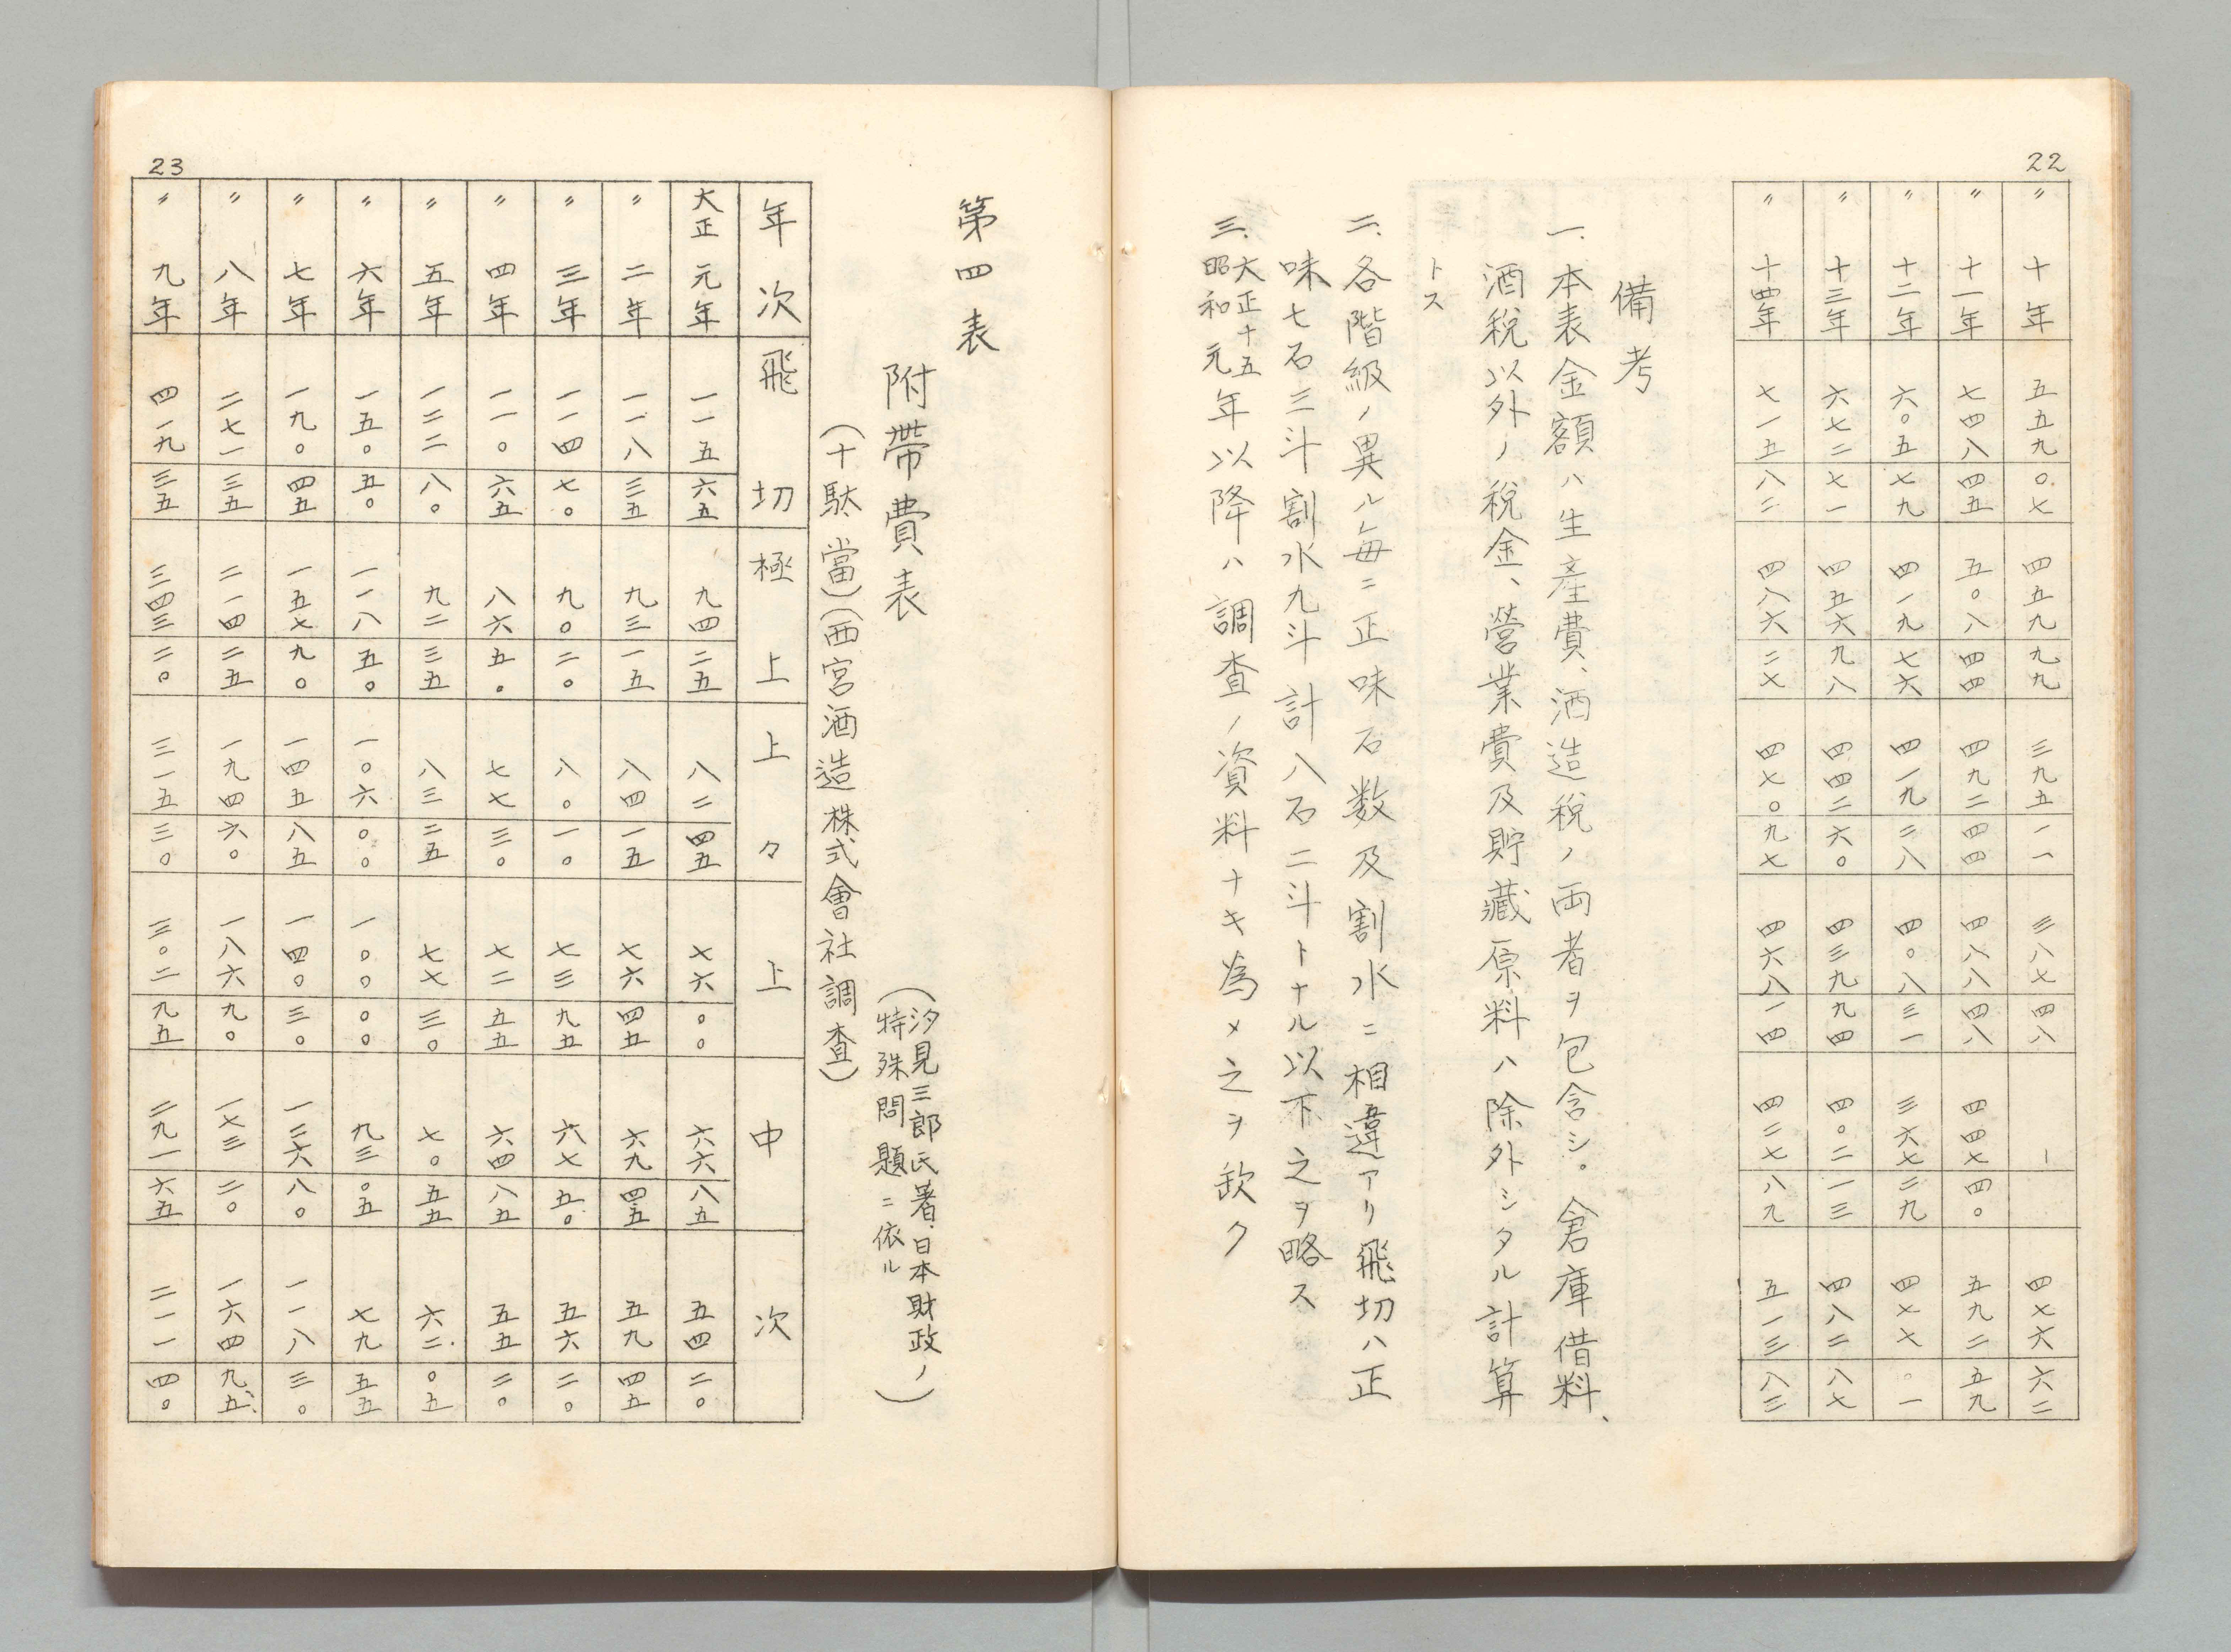 22
〃 十年 五五九 〇七 四五九 九九 三九五 一一 三八七 四八 － 四七六 六二
〃 十一年 七四八 四五 五〇八 四四 四九二 四四 四八八 四八 四四七 四〇 五九二 五九
〃 十二年 六〇五 七九 四一九 七六 四一九 二八 四〇八 三一 三六七 二九 四七七 〇一
〃 十三年 六七二 七一 四五六 九八 四四二 六〇 四三九 九四 四〇二 一三 四八二 八七
〃 十四年 七一五 八二 四八六 二七 四七〇 九七 四六八 一四 四二七 八九 五一三 八三
備考
一、本表金額ハ生產費、酒造税ノ両者ヲ包含シ。倉庫借料、
酒税以外ノ税金、營業費及貯藏原料ハ除外シタル計算
トス
二、各階級ノ異ル每ニ正味石数及割水ニ相違アリ飛切ハ正
味七石三斗割水九斗計八石二斗トナル以下之ヲ略ス
三、大正十五
昭和元年以降ハ調査ノ資料ナキ為メ之ヲ欽ク
第四表
附帶費表
(汐見三郎氏著、日本財政ノ
特殊問題ニ依ル)
(十駄當)(西宮酒造株式會社調査)
年次 飛切 極上 上々 上 中 次
大正元年 一一五 六五 九四 二五 八二 四五 七六 〇〇 六六 八五 五四 二〇
〃 二年 一一八 三五 九三 一五 八四 一五 七六 四五 六九 四五 五九 四五
〃 三年 一一四 七〇 九〇 二〇 八〇 一〇 七三 九五 六七 五〇 五六 二〇
〃 四年 一一〇 六五 八六 五〇 七七 三〇 七二 五五 六四 八五 五五 二〇
〃 五年 一二二 八〇 九二 三五 八三 二五 七七 三〇 七〇 五五 六二 〇五
〃 六年 一五〇 五〇 一一八 五〇 一〇六 〇〇 一〇〇 〇〇 九三 〇五 七九 五五
〃 七年 一九〇 四五 一五七 九〇 一四五 八五 一四〇 三〇 一二六 八〇 一一八 三〇
〃 八年 二七一 三五 二一四 二五 一九四 六〇 一八六 九〇 一七三 二〇 一六四 九五
〃 九年 四一九 三五 三四三 二〇 三一五 三〇 三〇二 九五 二九一 六五 二一一 四〇
23